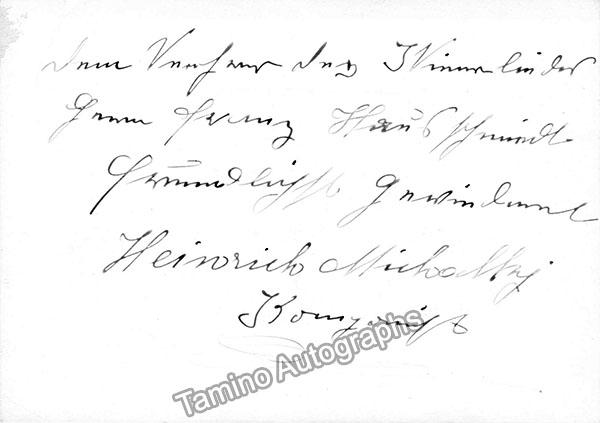 Dem Verfasser des Wienerliedes
Herrn Franz Hausschmidt
freundlichst Gewidmet
Heinrich Michalsky
Komponist
Tamino Autographs